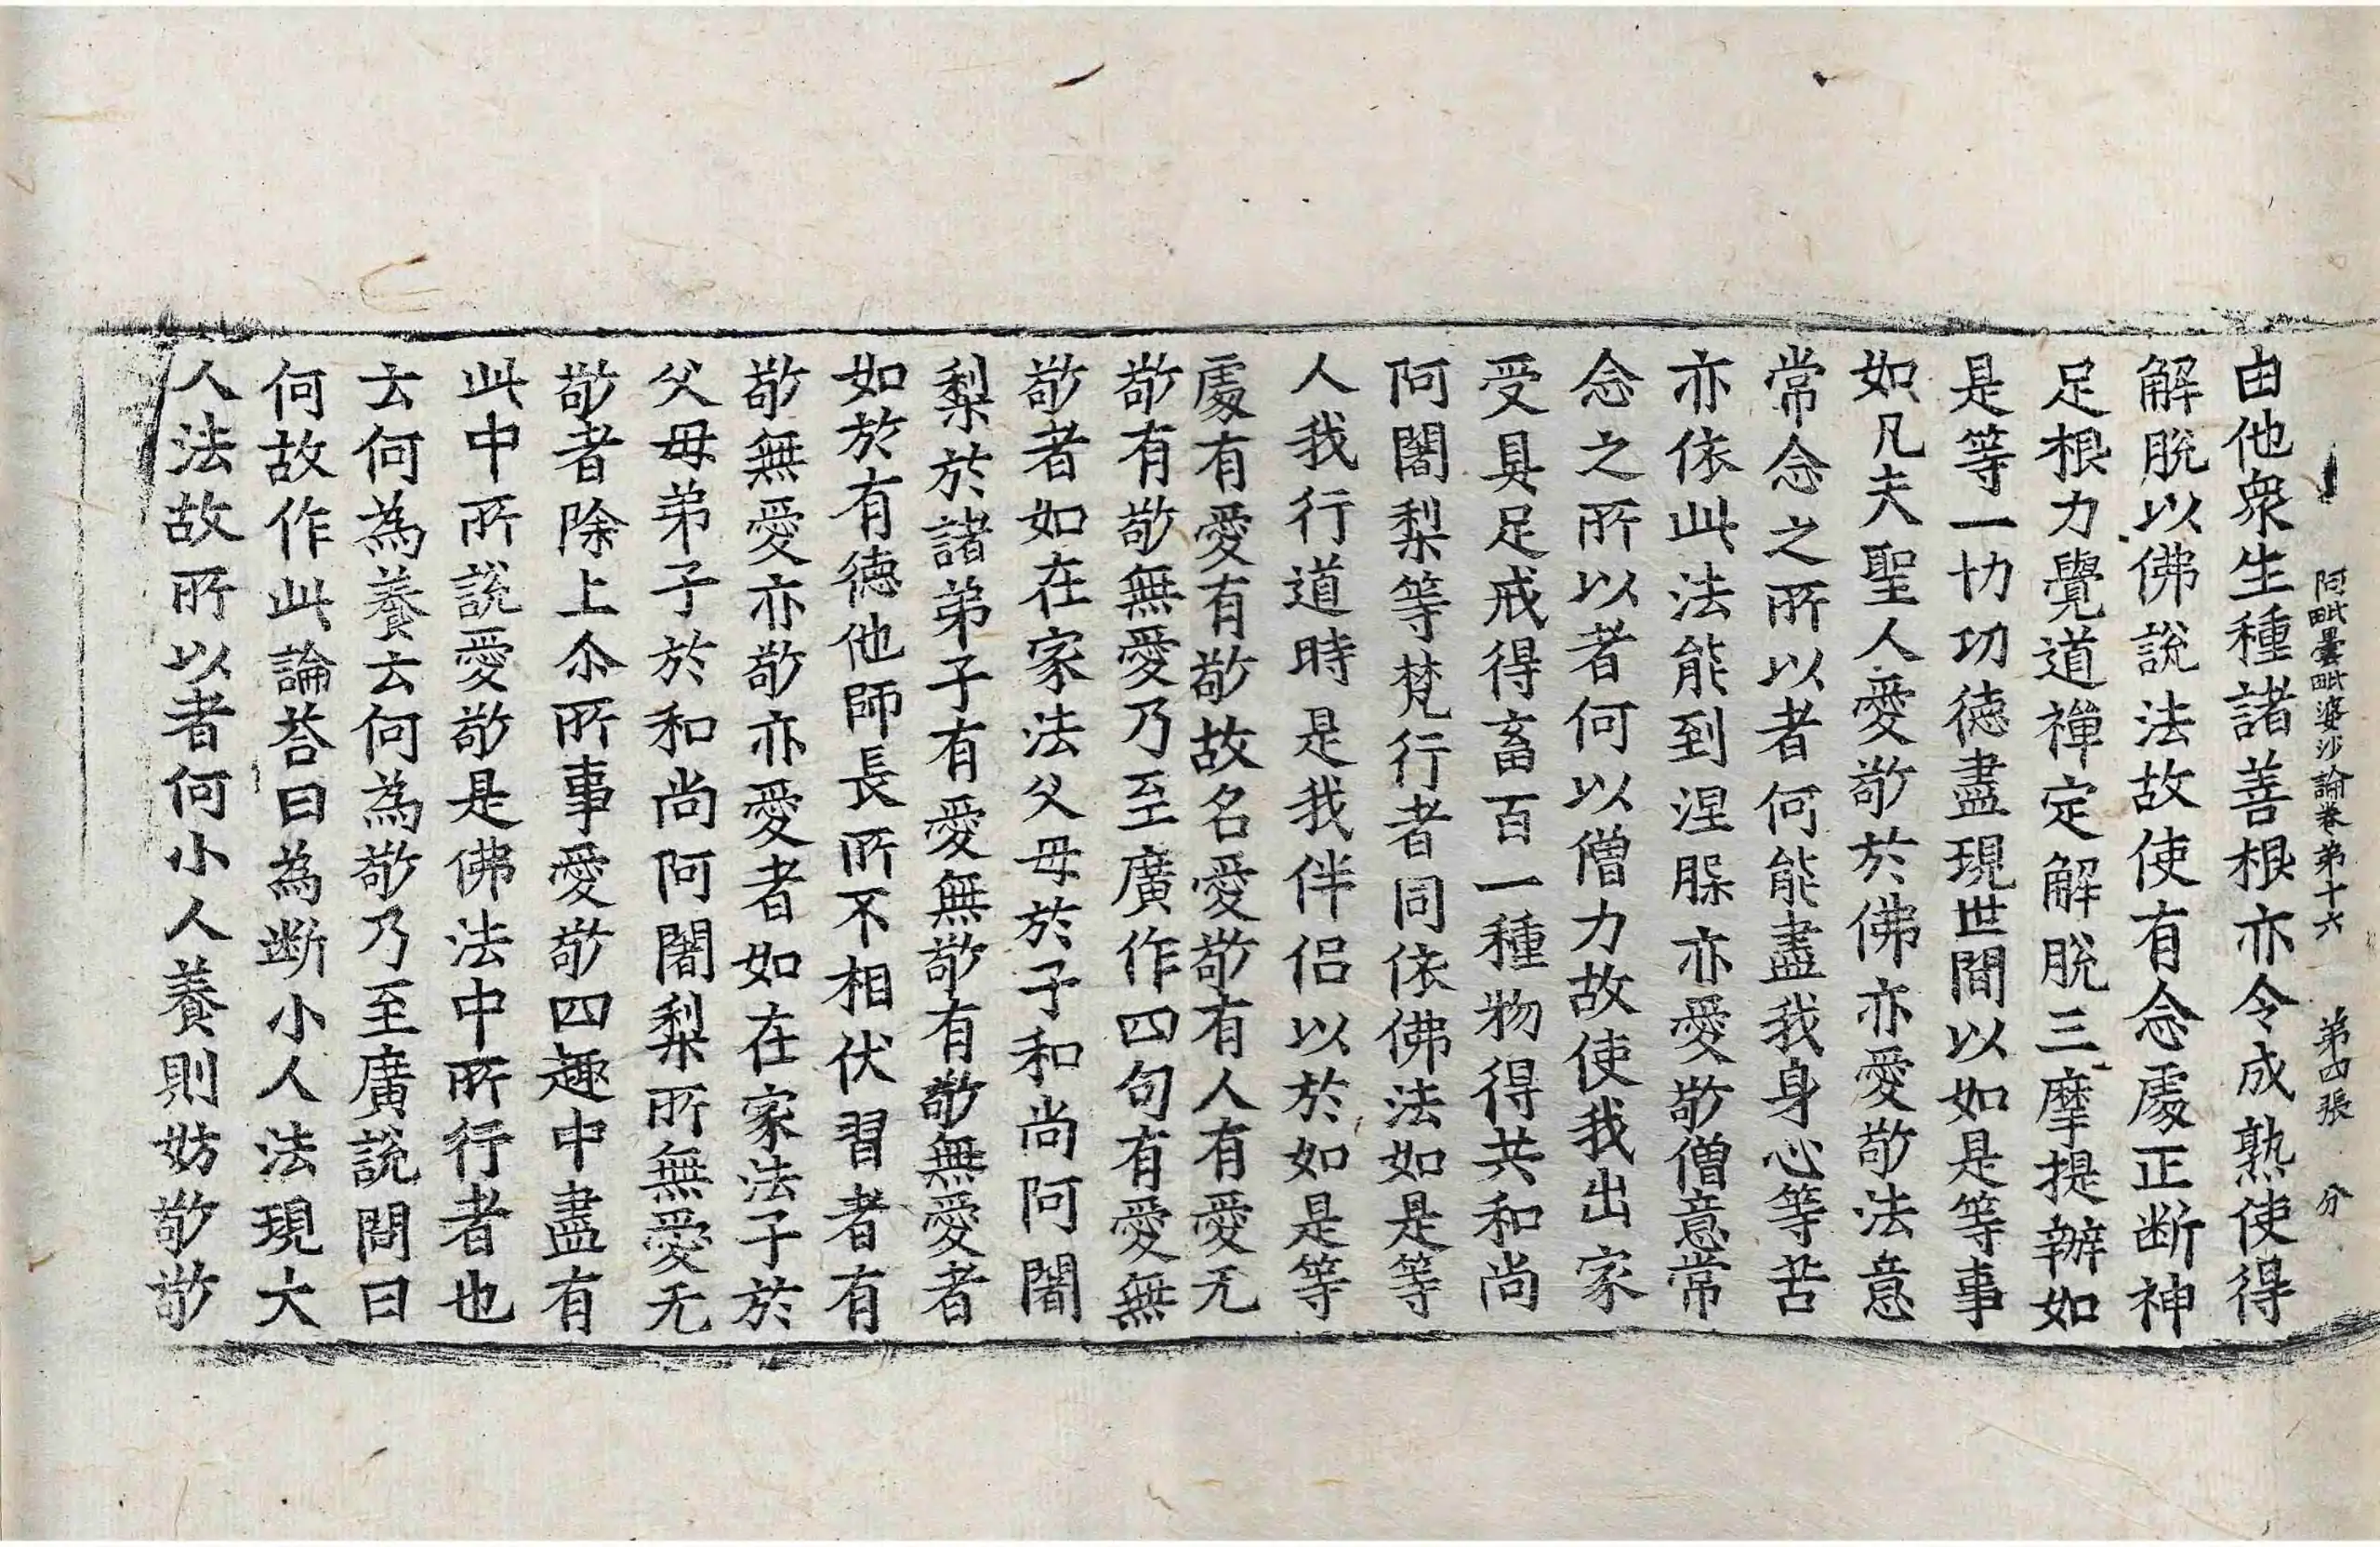 阿毗曇毗婆沙論卷第十六 第四張 分
由他衆生種諸善根亦令成熟使得
解脫以佛說法故使有念處正断神
足根力覺道禪定解脫三摩提辦如
是等一切功德盡現世間以如是等事
如凡夫聖人愛敬於佛亦愛敬法意
常念之所以者何能盡我身心等苦
亦依此法能到涅脲亦愛敬僧意常
念之所以者何以僧力故使我出家
受具足戒得畜百一種物得共和尚
阿闍梨等梵行者同依佛法如是等
人我行道時是我伴侶以於如是等
處有愛有敬故名愛敬有人有愛无
敬有敬無愛乃至廣作四句有愛無
敬者如在家法父母於子和尚阿闍
梨於諸弟子有愛無敬有敬無愛者
如於有德他師長所不相伏習者有
敬無愛亦敬亦愛者如在家法子於
父母弟子於和尚阿闍梨所無愛无
敬者除上尒所事愛敬四趣中盡有
此中所說愛敬是佛法中所行者也
云何為養云何為敬乃至廣說問曰
何故作此論荅曰為断小人法現大
人法故所以者何小人養則妨敬敬